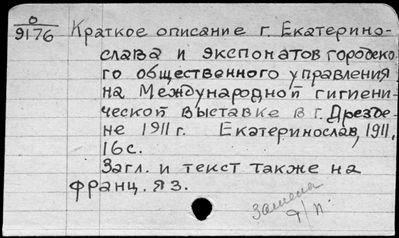 0
9176
Краткое описание г. Екатерино-
слава и экспонатов городско-
го общественного управления
на Международной гигиени-
ческой выставке в г. Дрезде-
не 1911 г. Екатеринослав, 1911.
16 с.
Загл. и текст также на
франц. яз.
Замена